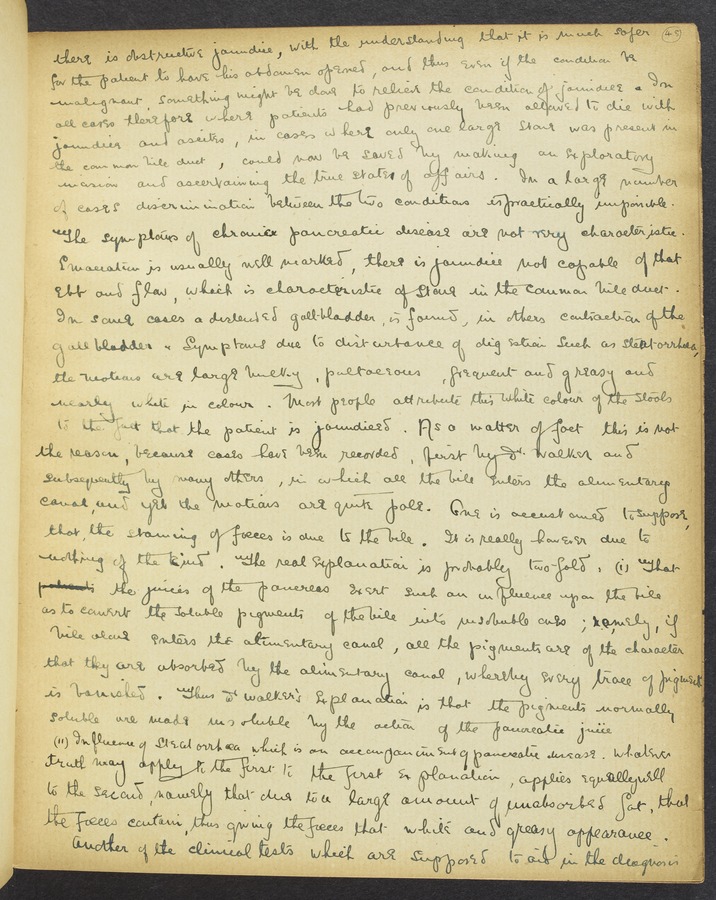 (45)
there is obstructive jaundice, with the understanding that it is much safer
for the patient to have his abdomen opened, and thus even if the condition be
malignant, something might be done to relieve the condition of jaundice. In
all cases therefore where patients had previously been allowed to die with
jaundice and ascites, in cases where only one large stone was present in
the common bile duct, could now be saved by making an exploratory
incision and ascertaining the true states of affairs. In a large number
of cases discrimination between the two conditions is practically impossible.
The symptoms of chronic pancreatic disease are not very characteristic.
Emaciation is usually well marked, there is jaundice not capable of that
ebb and flow, which is characteristic of stone in the common bile duct.
In some cases a distended gall-bladder, is found, in others contraction of the
gall bladder. Symptoms due to disturbance of digestion such as steatorrhoea,
the motions are large bulky, pultaceous, frequent and greasy and
nearly white in colour. Most people attribute this white colour of the stools
to the fact that the patient is jaundiced. As a matter of fact this is not
the reason, because cases have been recorded, first by Dr. Walker and
subsequently by many others, in which all the bile enters the alimentary
canal, and yet the motions are quite pale. One is accustomed to suppose,
that, the staining of foeces is due to the bile. It is really however due to
nothing of the kind. The real explanation is probably two-fold: (i) That
the juices of the pancreas exert such an influence upon the bile
as to convert the soluble pigments of the bile into insoluble ones; namely, if
bile alone enters the alimentary canal, all the pigments are of the character
that they are absorbed by the alimentary canal, whereby every trace of pigment
is banished. Thus Dr Walker's explanation is that the pigments normally
soluble are made insoluble by the action of the pancreatic juice
(ii) Influence of steatorrhoea which is an accompaniment of pancreatic disease. Whatever
truth may apply to the first to the first explanation, applies equally well
to the second, namely that due to a large amount of unabsorbed fat, that
the foeces contain, thus giving the foeces that white and greasy appearance.
Another of the clinical tests which are supposed to aid in the diagnosis